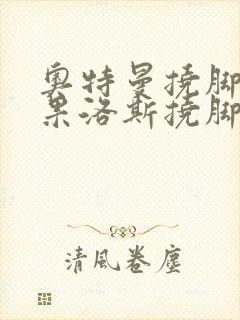 奥特曼挠脚
果洛斯挠脚
清風卷塵